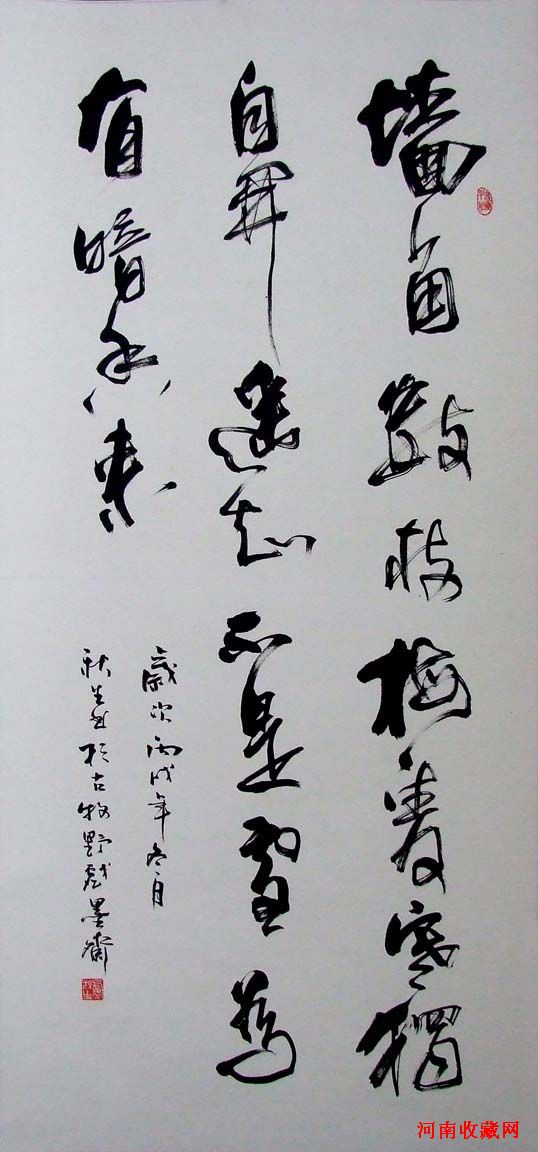 墙角数枝梅凌寒独
自开遥知不是雪为
有暗香来
歳次丙戌年冬月
秋生书于古牧野戏墨斋
河南收藏网